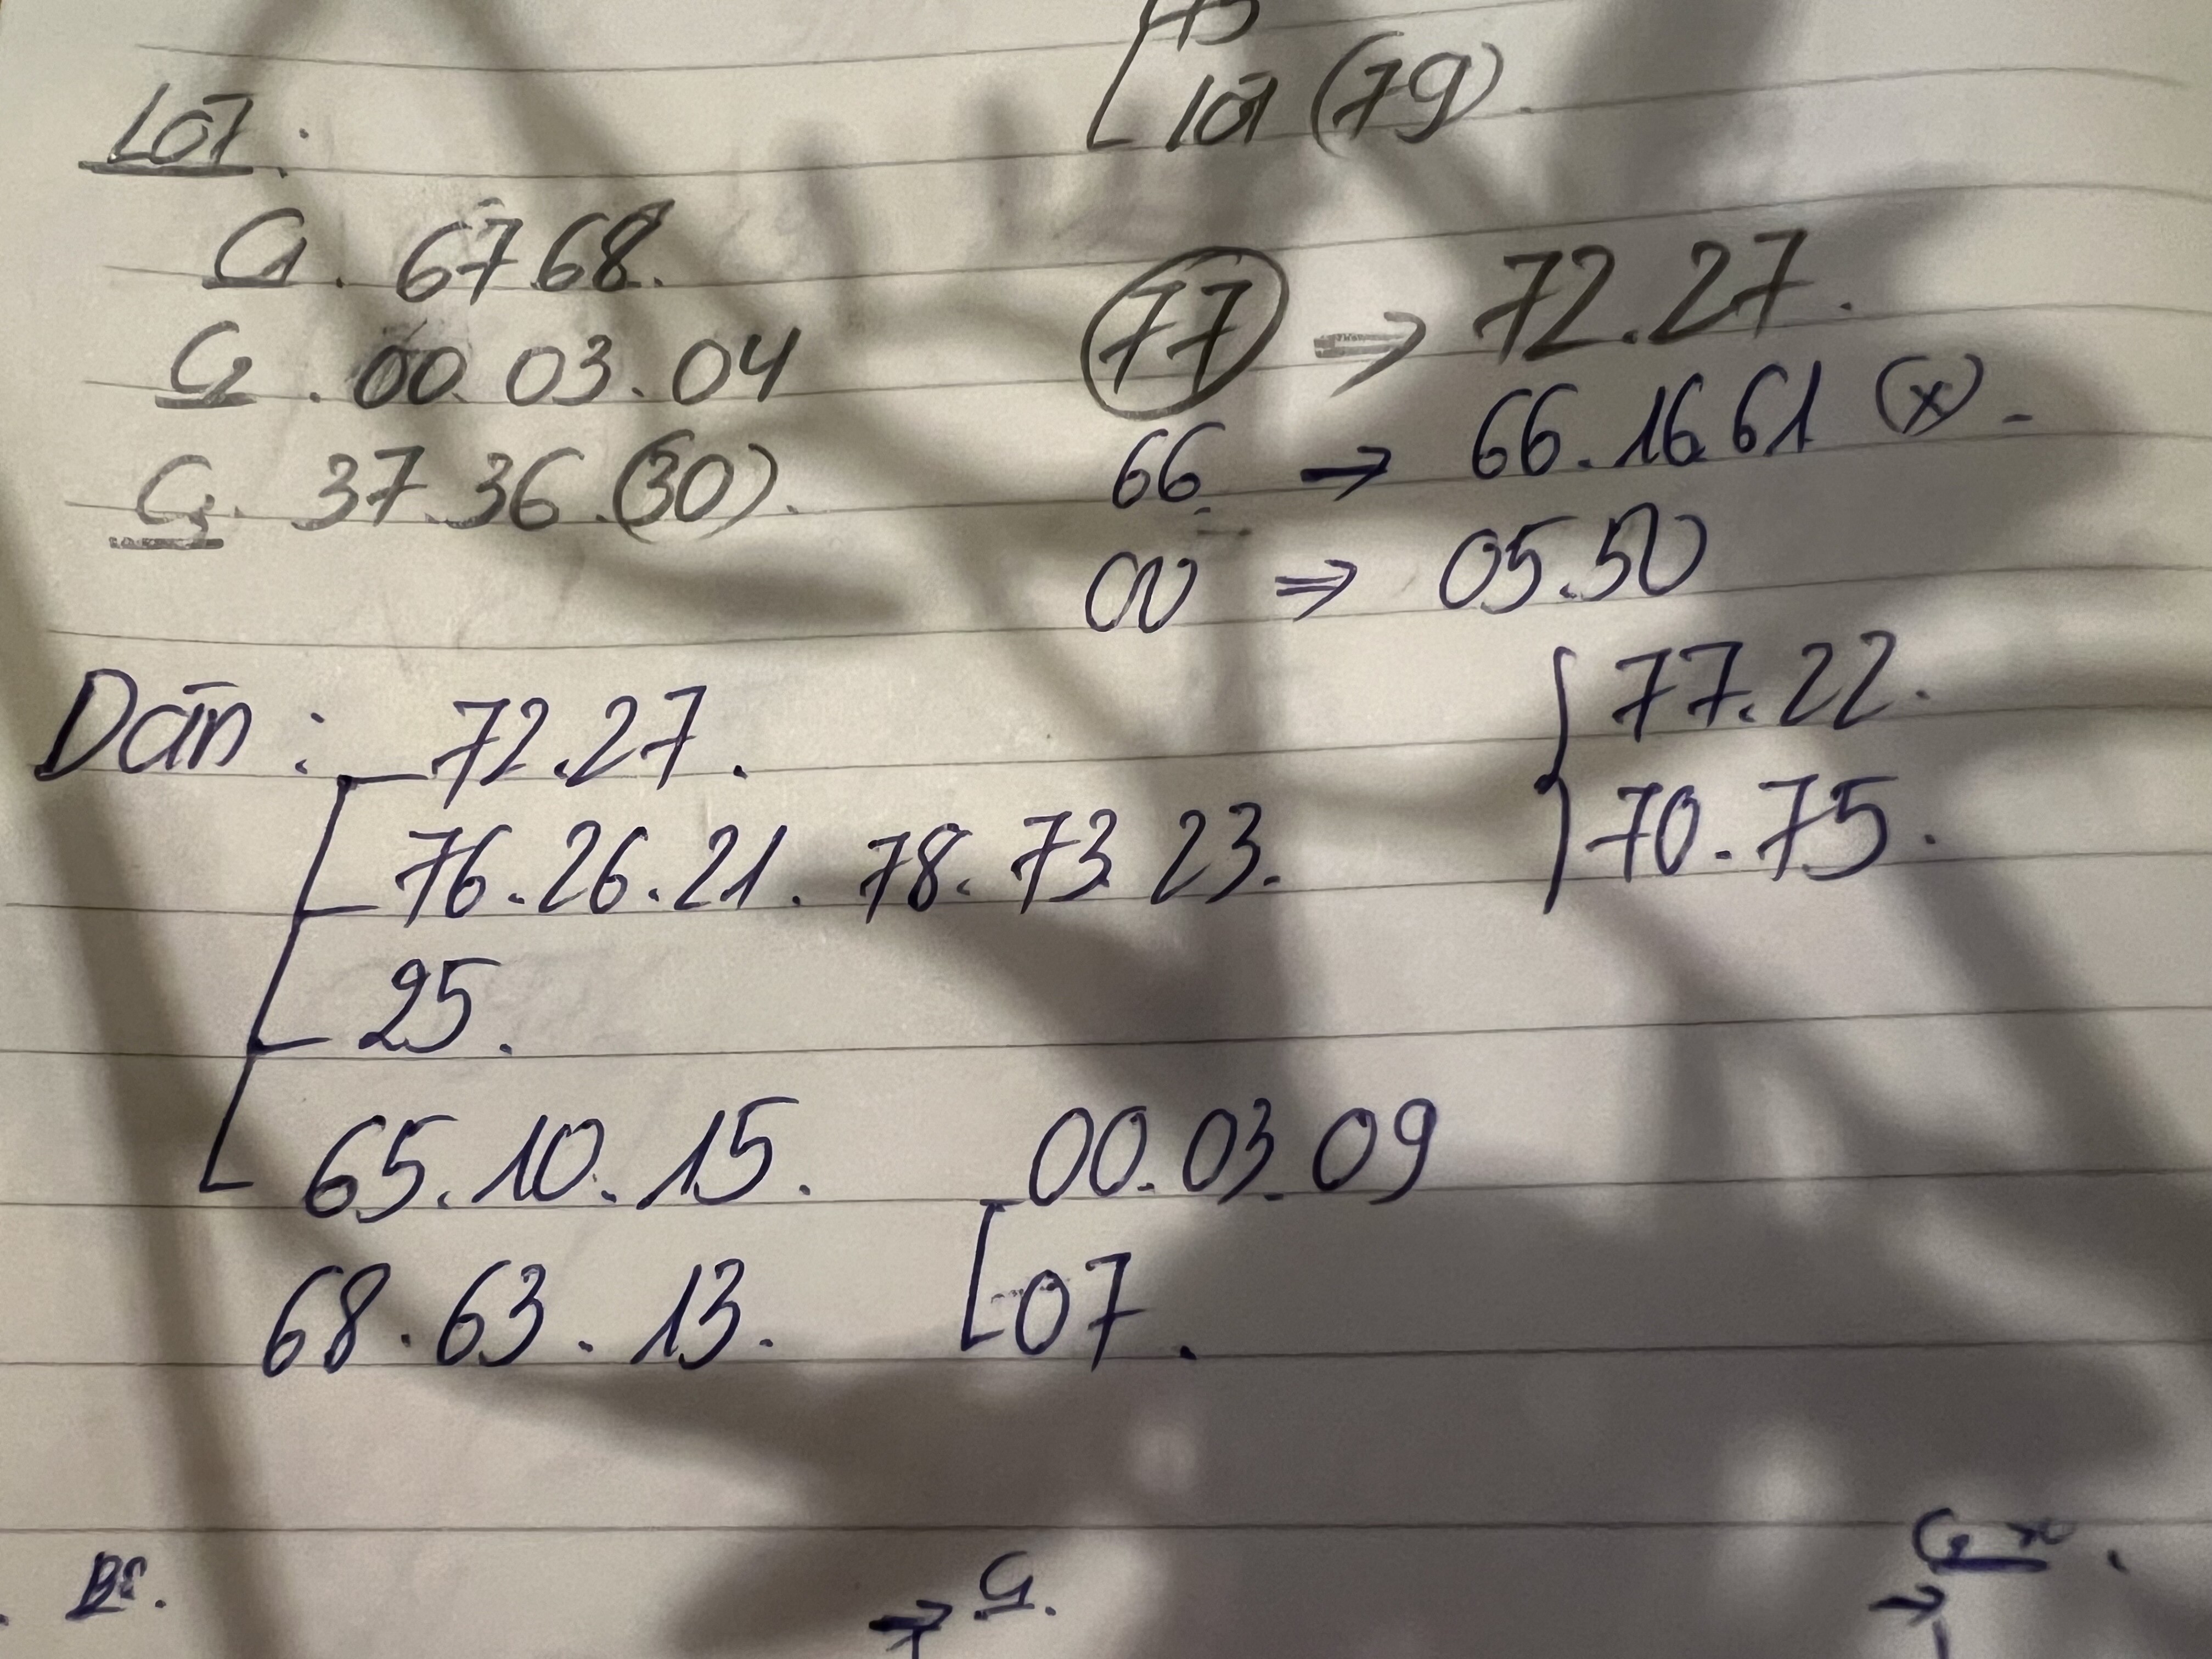 Lót:
C1. 67 68.
C2. 00. 03. 04
C3. 37. 36. (30).
lót (79).
77 ⇒ 72.27.
66 → 66.16 61 (x).
00 ⇒ 05.50
Dán: 72.27.
76.26.21. 78. 73 23.
25.
65.10.15.
68.63.13.
77.22.
70.75.
00.03.09
07.
→ C1.
→